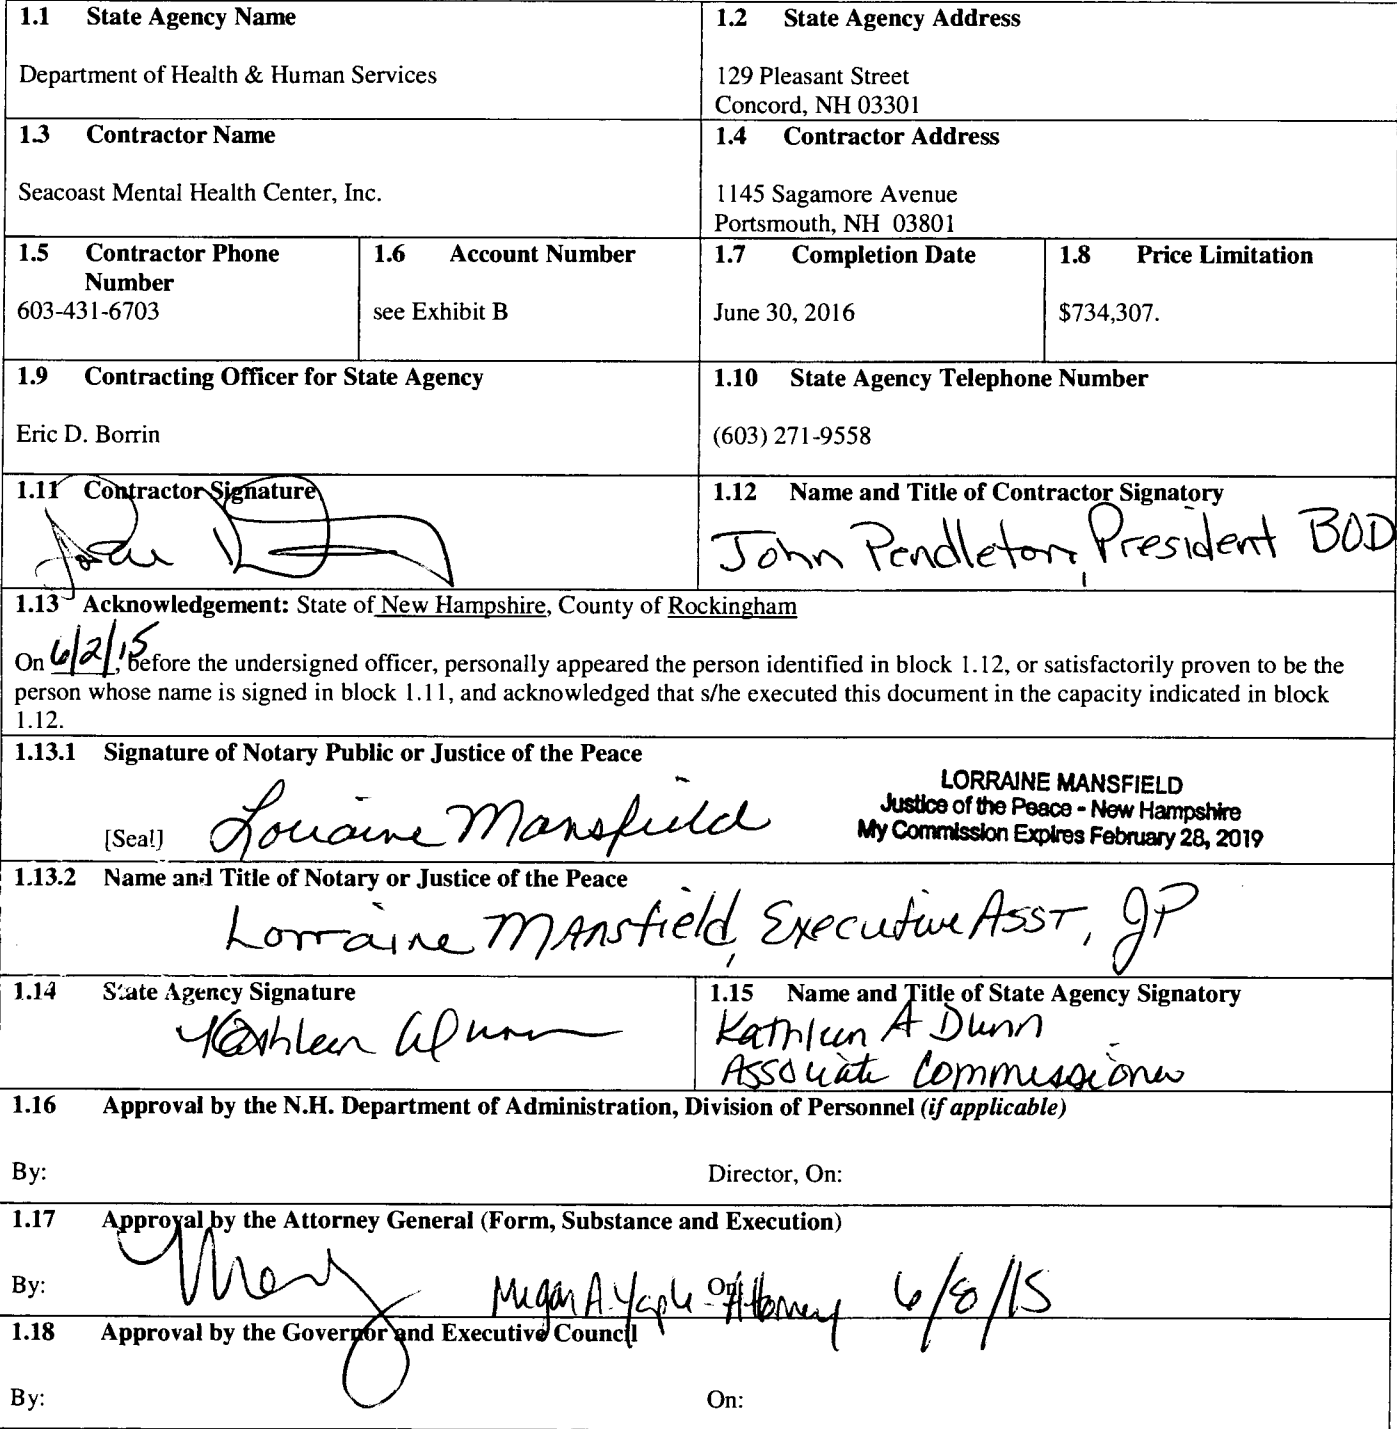 1.1 State Agency Name
Department of Health & Human Services
1.2 State Agency Address
129 Pleasant Street
Concord, NH 03301
1.3 Contractor Name
Seacoast Mental Health Center, Inc.
1.4 Contractor Address
1145 Sagamore Avenue
Portsmouth, NH 03801
1.5 Contractor Phone
Number
603-431-6703
1.6 Account Number
see Exhibit B
1.7 Completion Date
June 30, 2016
1.8 Price Limitation
$734,307.
1.9 Contracting Officer for State Agency
Eric D. Borrin
1.10 State Agency Telephone Number
(603) 271-9558
1.11 Contractor Signature
1.12 Name and Title of Contractor Signatory
John Pendleton, President BOD
1.13 Acknowledgement: State of New Hampshire, County of Rockingham
On 6/2/15, before the undersigned officer, personally appeared the person identified in block 1.12, or satisfactorily proven to be the
person whose name is signed in block 1.11, and acknowledged that s/he executed this document in the capacity indicated in block
1.12.
1.13.1 Signature of Notary Public or Justice of the Peace
[Seal] Lorraine Mansfield
LORRAINE MANSFIELD
Justice of the Peace - New Hampshire
My Commission Expires February 28, 2019
1.13.2 Name and Title of Notary or Justice of the Peace
Lorraine Mansfield, Executive Asst, JP
1.14 State Agency Signature
Kathleen A Dunn
1.15 Name and Title of State Agency Signatory
Kathleen A Dunn
Associate Commissioner
1.16 Approval by the N.H. Department of Administration, Division of Personnel (if applicable)
By: Director, On:
1.17 Approval by the Attorney General (Form, Substance and Execution)
By: Megan A. Yaple - Attorney On: 6/8/15
1.18 Approval by the Governor and Executive Council
By: On: